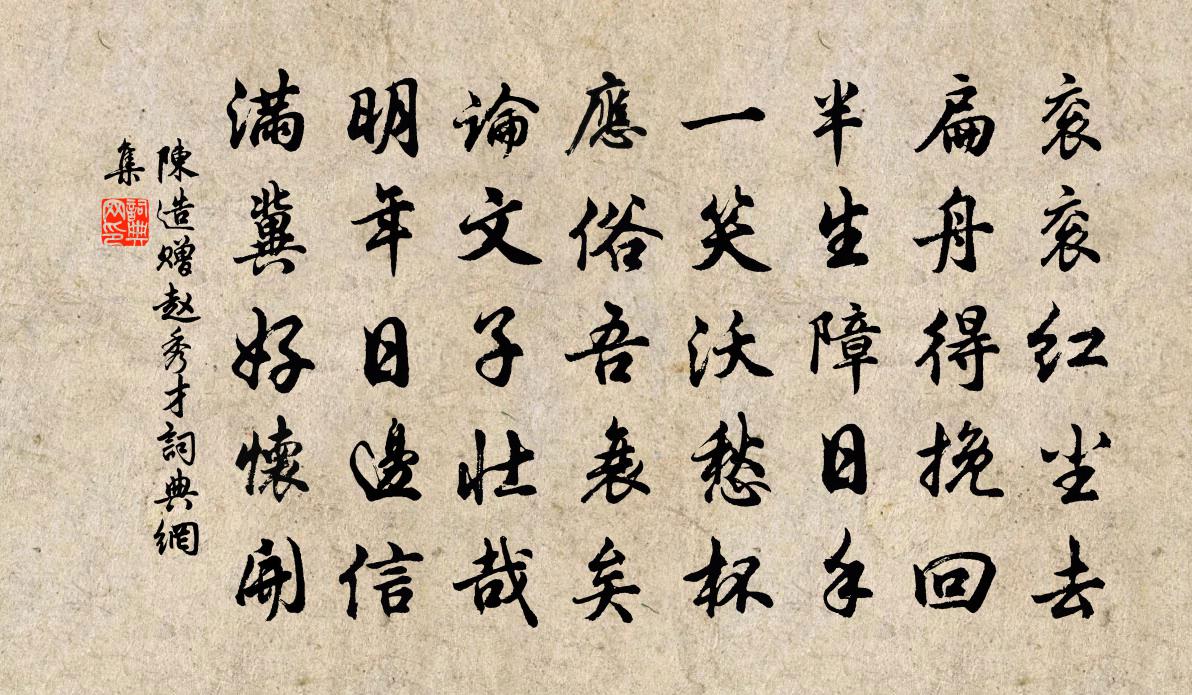 衮衮红尘去
扁舟得挽回
半生障日手
一笑沃愁杯
應俗吾衰矣
論文子壯哉
明年日邊信
满冀好懷開
陳造赠赵秀才詞典網
集
詞典
网印